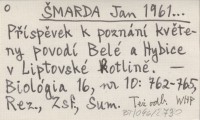 ŠMARDA Jan 1961...
Příspěvek k poznání květe-
ny povodí Belé a Hybice
v Liptovské kotlině. —
Biológia 16, nr 10: 762-765,
Rez., Zsf, Sum.